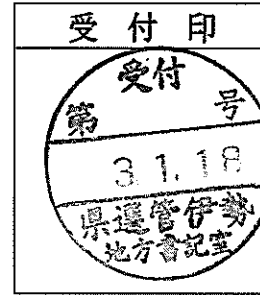 受付印
受付
第 号
3.1.18
県選管伊勢
地方書記室